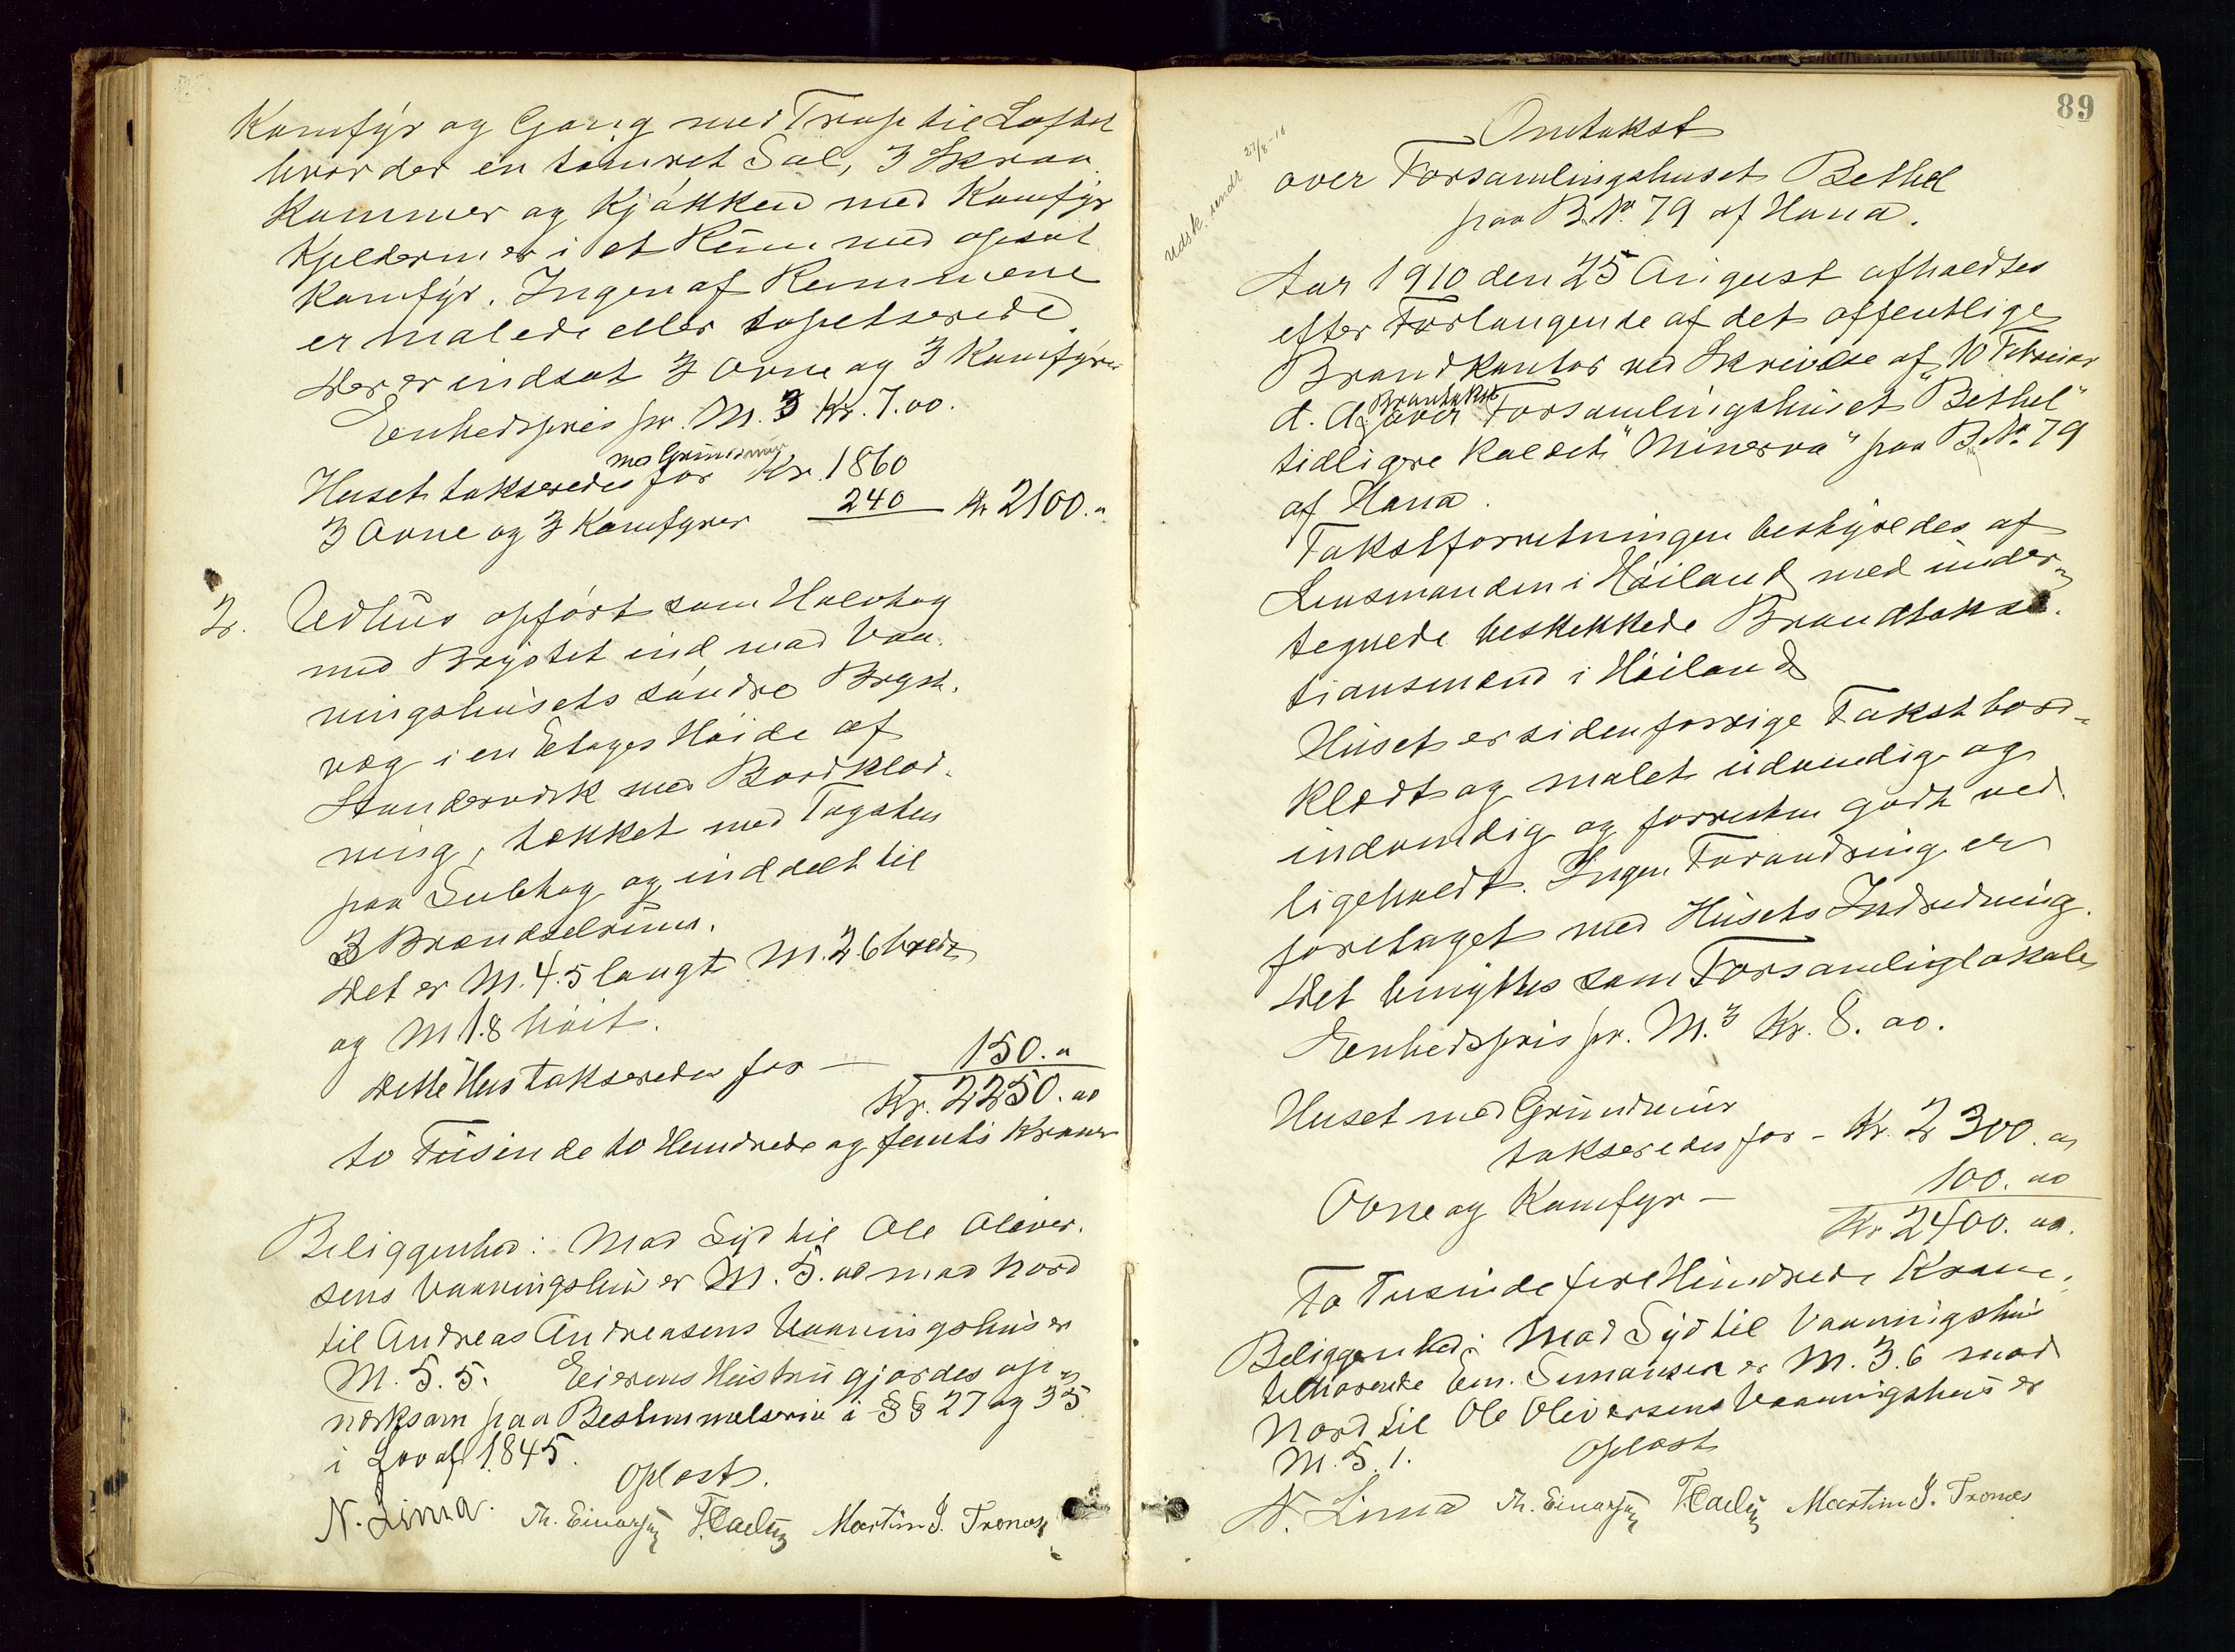 Komfyr og Gang med Trap til Loftet
hvor der en tømret Sal, 3 Skraa
Kammer og Kjøkken med Komfyr
Kjelderen er i et Rum med opsat
Komfyr. Ingen af Rummene
er malede eller tapetserede.
Der er indsat 3 Ovne og 3 Komfyrer
Enhedspris pr. M.3 Kr. 7.00.
med Grundmur
Huset takseredes for Kr. 1860
3 Ovne og 3 Komfyrer 240 Kr 2100.
2. Udhus opført som Halvtag
med Brystet ind mod Vaa-
ningshusets søndre Bryst-
væg i en Etages Høide af
Standerværk med Bordklæd-
ning, tækket med Tagsten
paa Sultag og inddelt til
3 Brændselrum.
Det er M. 4.5 langt M. 2.6 bredt
og M 1.8 høit.
Dette Hus takseredes for — 150.
Kr. 2250.00
to Tusinde to Hundrede og femti Kroner
Beliggenhed: Mod Syd til Ole Oliver-
sens Vaaningshus er M. 5.00 mod Nord
til Andreas Andreasens Vaaningshus er
M. 5.5. Eierens Hustru gjordes op-
mærksom paa Bestemmelserne i §§ 27 og 35
i Lov af 1845.
Oplæst.
N. Lima. Th. Einarsen Martin J. Tronæs
89
Udsk. sendt 27/8-10
Omtakst
over Forsamlingshuset Bethel
paa B.No. 79 af Hana.
Aar 1910 den 25 August afholdtes
efter Forlangende af det offentlige
Brandkontor ved Skrivelse af 10 Februar
Brantakst
d. A. over Forsamlingshuset "Bethel"
tidligere kaldet "Minerva" paa B.No. 79
af Hana.
Takstforretningen bestyredes af
Lensmanden i Høiland med under-
tegnede beskikkede Brandtaksa-
tionsmænd i Høiland
Huset er siden forrige Takst bord-
klædt og malet udvendig og
indvendig og forresten godt ved
ligeholdt. Ingen Forandring er
foretaget med Husets Indredning.
Det benyttes som Forsamliglokale
Enhedspris pr. M.3 Kr. 8.00.
Huset med Grundmur
takseredes for - Kr. 2300.00
Ovne og Komfyr — 100.00
Kr 2400.00.
To Tusinde fire Hundrede Kroner.
Beliggenhed: Mod Syd til Vaaningshus
tilhørende Em. Simonsen er M. 3.6 mod
Nord til Ole Oliversens Vaaningshus er
M. 5.1. Oplæst
N. Lima Th. Einarsen Martin J. Tronæs